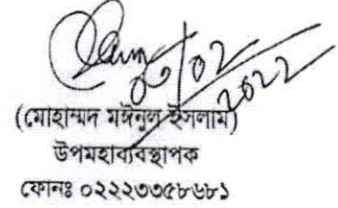 ০৩/০২/2022
(মোহাম্মদ মঈনুল ইসলাম)
উপমহাব্যবস্থাপক
ফোনঃ ০২২২৩৩৫৮৬৮১